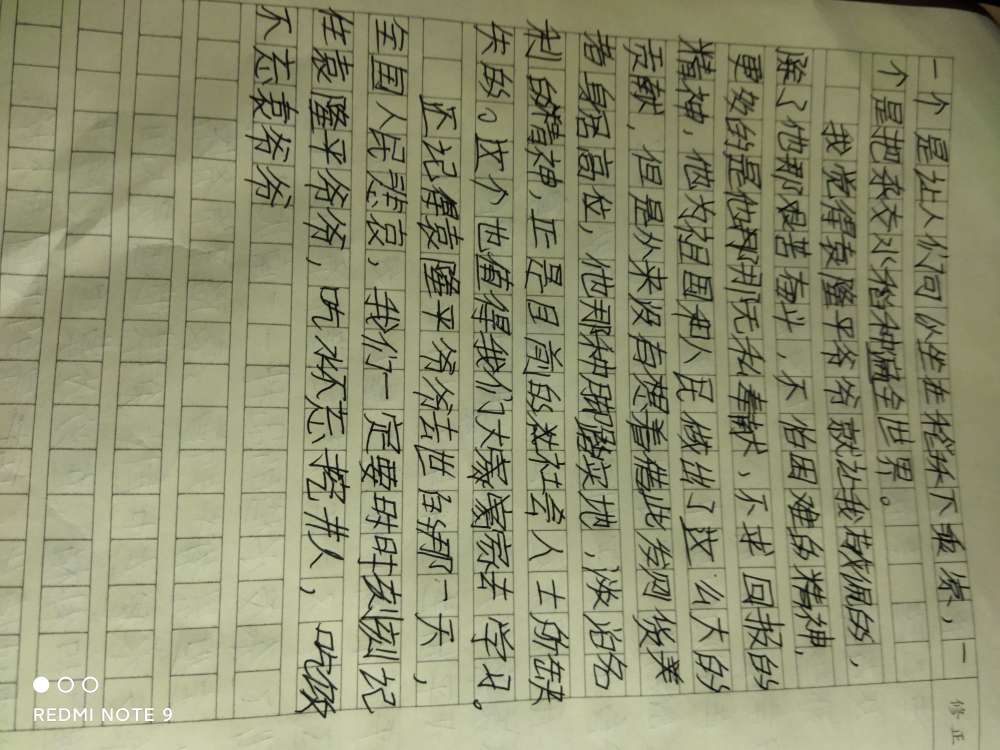 一个是让人们可以坐在稻禾下乘凉，一
个是把水稻种满全世界。
我觉得袁隆平爷爷就让我敬佩的，
除了他那艰苦奋斗，不怕困难的精神，
更多的是他那用无私奉献、不求回报的
精神，他为祖国和人民做出了这么大的
贡献，但是从来没有想着借此发网
者身居高位，他那种脚踏实地，淡泊名
利的精神，正是目前的社会人士所缺
失的。这个也值得我们大家去学习。
还记得袁隆平爷爷去世的那一天，
全国人民悲哀，我们一定要时时刻刻记
住袁隆平爷爷，吃水不忘挖井人，吃饭
不忘袁爷爷
修正
REDMI NOTE 9